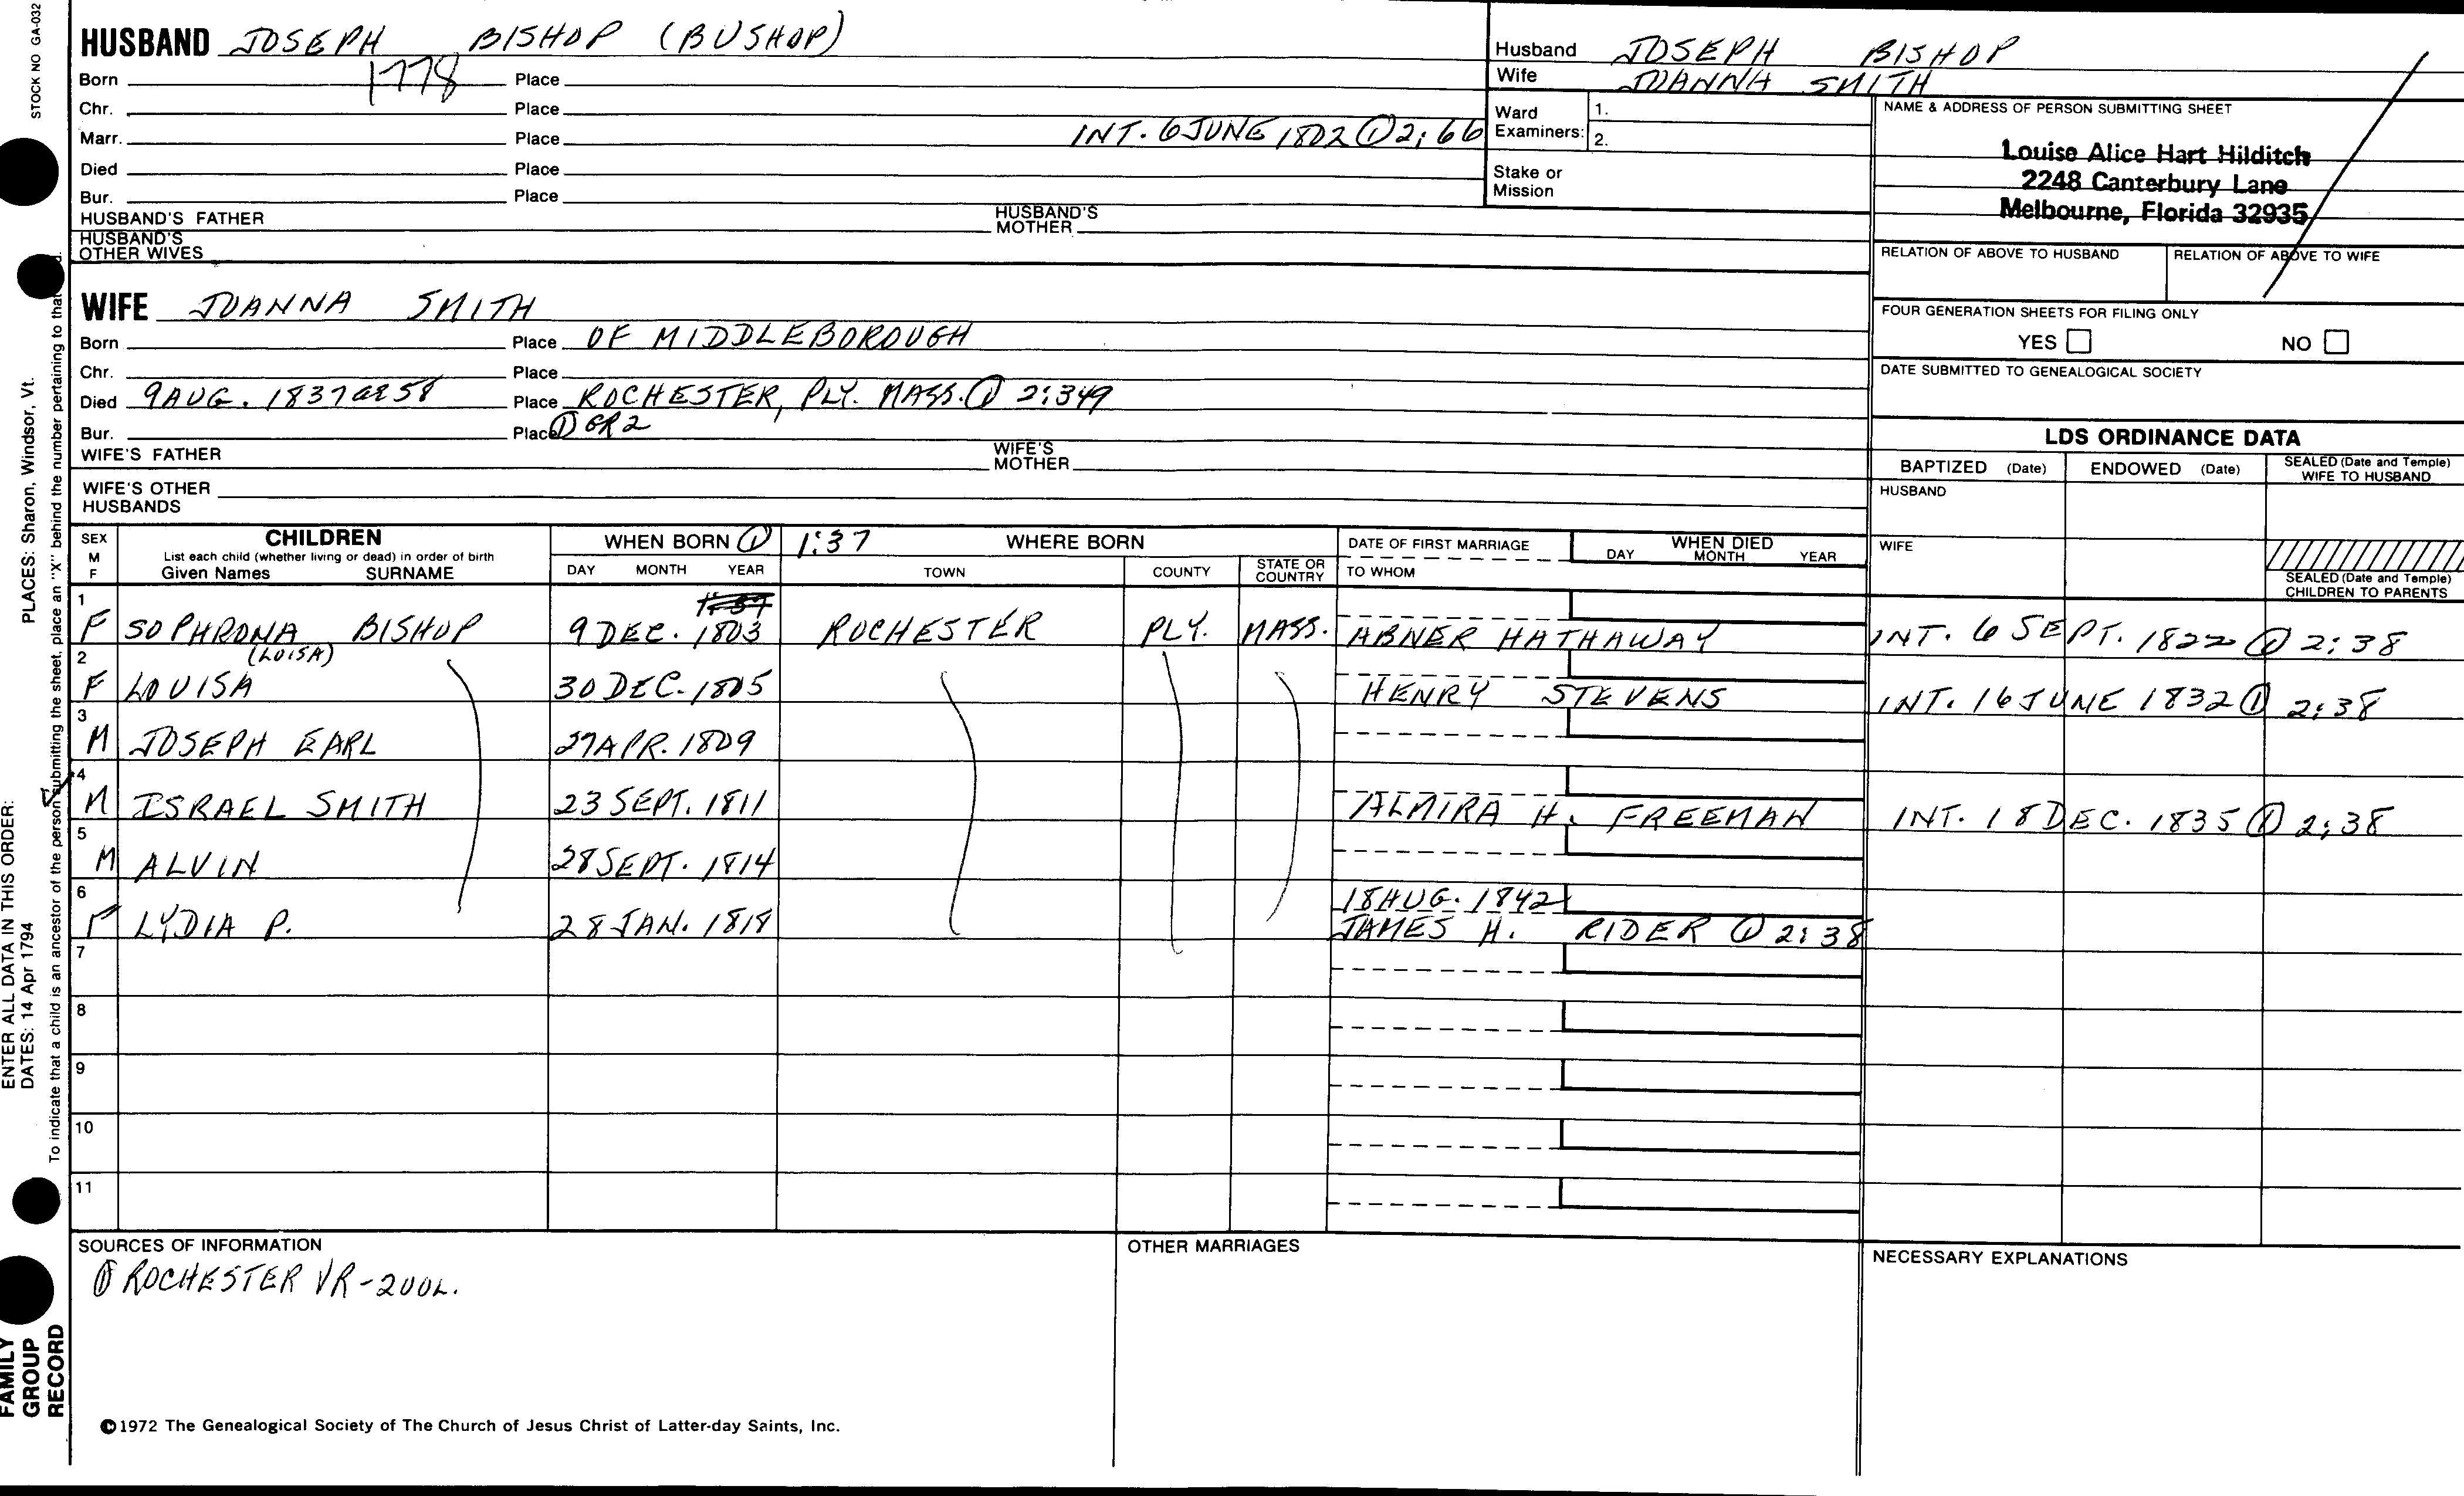 STOCK NO GA-032
HUSBAND JOSEPH BISHOP (BUSHOP)
Born 1778 Place
Chr. Place
Marr. Place INT. 6 JUNE 1802 ① 2:66
Died Place
Bur. Place
HUSBAND'S FATHER HUSBAND'S MOTHER
HUSBAND'S OTHER WIVES
Husband JOSEPH BISHOP
Wife JOANNA SMITH
Ward Examiners: 1.
2.
Stake or Mission
NAME & ADDRESS OF PERSON SUBMITTING SHEET
Louise Alice Hart Hilditch
2248 Canterbury Lane
Melbourne, Florida 32935
RELATION OF ABOVE TO HUSBAND RELATION OF ABOVE TO WIFE
FOUR GENERATION SHEETS FOR FILING ONLY
YES NO
DATE SUBMITTED TO GENEALOGICAL SOCIETY
WIFE JOANNA SMITH
Born Place OF MIDDLEBOROUGH
Chr. Place
Died 9 AUG. 1837 ae 58 Place ROCHESTER, PLY. MASS. ① 2:349
Bur. Place ① GR2
WIFE'S FATHER WIFE'S MOTHER
WIFE'S OTHER HUSBANDS
LDS ORDINANCE DATA
BAPTIZED (Date) ENDOWED (Date) SEALED (Date and Temple) WIFE TO HUSBAND
HUSBAND
WIFE
SEALED (Date and Temple) CHILDREN TO PARENTS
SEX M F CHILDREN WHEN BORN ① 1:37 WHERE BORN DATE OF FIRST MARRIAGE WHEN DIED
List each child (whether living or dead) in order of birth
Given Names SURNAME DAY MONTH YEAR TOWN COUNTY STATE OR COUNTRY TO WHOM DAY MONTH YEAR
1 F SOPHRONA BISHOP 9 DEC. 1803 ROCHESTER PLY. MASS. ABNER HATHAWAY INT. 6 SEPT. 1822 ① 2:38
(LOISA)
2 F LOUISA 30 DEC. 1805 HENRY STEVENS INT. 16 JUNE 1832 ① 2:38
3 M JOSEPH EARL 27 APR. 1809
4 M ISRAEL SMITH 23 SEPT. 1811 ALMIRA H. FREEMAN INT. 18 DEC. 1835 ① 2:38
5 M ALVIN 28 SEPT. 1814
18 AUG. 1842
6 F LYDIA P. 28 JAN. 1818 JAMES H. RIDER ① 2:38
7
8
9
10
11
SOURCES OF INFORMATION
① ROCHESTER VR-200L.
OTHER MARRIAGES
NECESSARY EXPLANATIONS
©1972 The Genealogical Society of The Church of Jesus Christ of Latter-day Saints, Inc.
FAMILY GROUP RECORD
ENTER ALL DATA IN THIS ORDER:
DATES: 14 Apr 1794
PLACES: Sharon, Windsor, Vt.
To indicate that a child is an ancestor of the person submitting the sheet, place an "X" behind the number pertaining to that